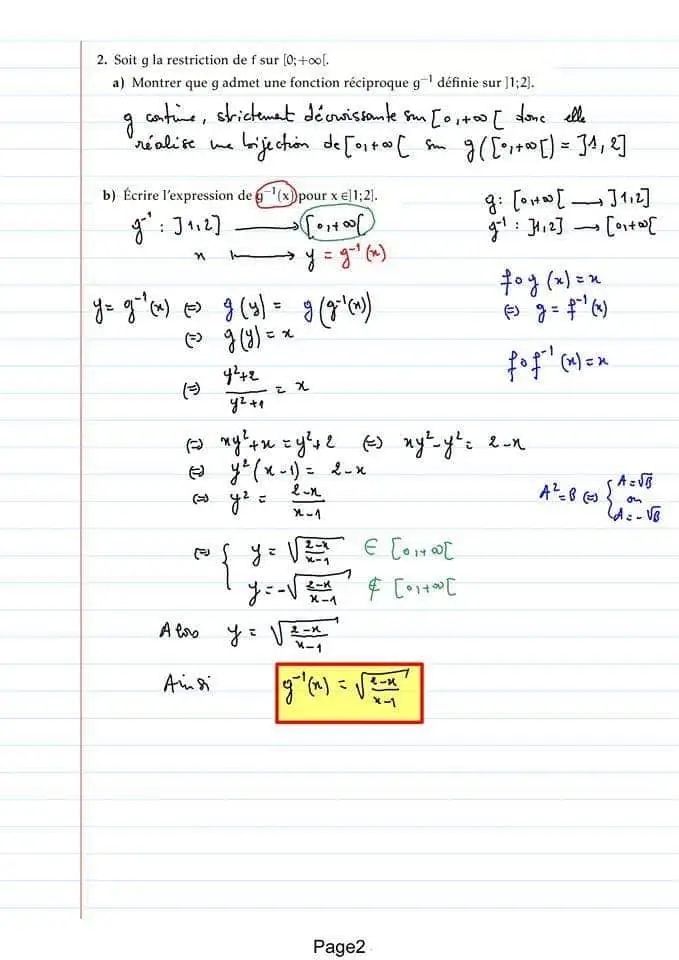 2. Soit g la restriction de f sur [0;+∞[.
a) Montrer que g admet une fonction réciproque g⁻¹ définie sur ]1;2].
g continue, strictement décroissante sur [0,+∞[ donc elle
réalise une bijection de [0,+∞[ sur g([0,+∞[) = ]1,2]
b) Écrire l'expression de g⁻¹(x) pour x∈]1;2].
g⁻¹ : ]1,2] ⟶ [0,+∞[
x ⟼ y = g⁻¹(x)
g : [0,+∞[ ⟶ ]1,2]
g⁻¹ : ]1,2] ⟶ [0,+∞[
f∘g(x) = x
(=) g = f⁻¹(x)
f∘f⁻¹(x) = x
y = g⁻¹(x) (=) g(y) = g(g⁻¹(x))
(=) g(y) = x
(=) (y²+2)/(y²+1) = x
(=) xy²+x = y²+2 (=) xy²-y² = 2-x
(=) y²(x-1) = 2-x
(=) y² = (2-x)/(x-1)
A²=B (=) { A=√B
ou
A=-√B
(=) { y = √((2-x)/(x-1)) ∈ [0,+∞[
y = -√((2-x)/(x-1)) ∉ [0,+∞[
Alors y = √((2-x)/(x-1))
Ainsi g⁻¹(x) = √((2-x)/(x-1))
Page2